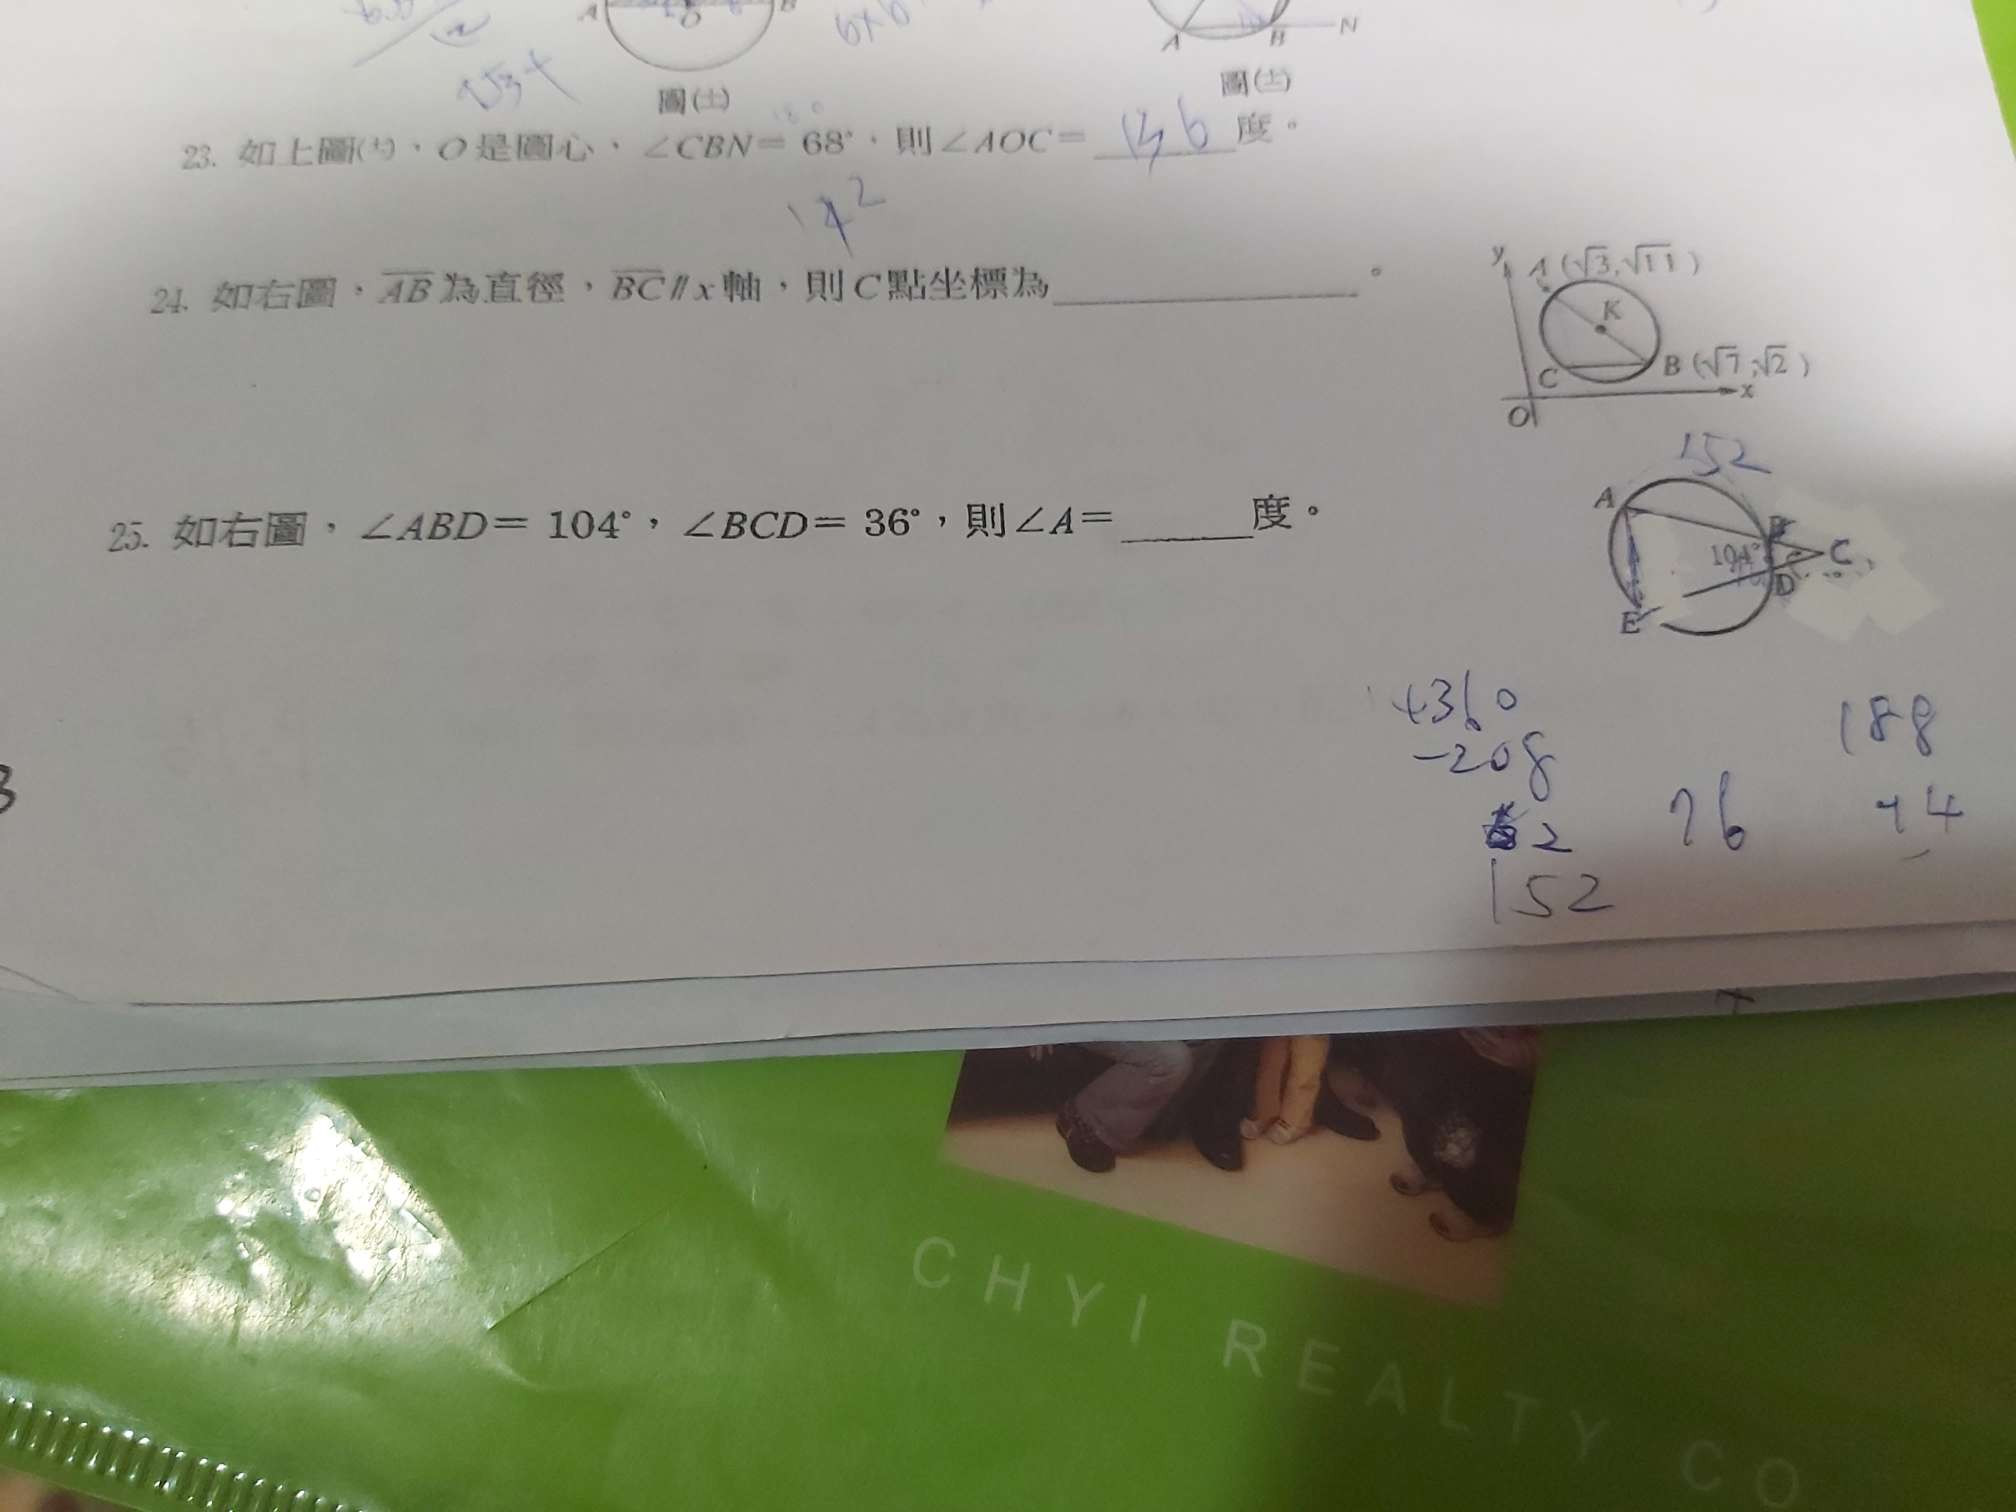 A O B
A B N
圖(士) 圖(士)
23. 如上圖(十)、O是圓心、∠CBN=68°,則∠AOC=136度。
142
24. 如右圖,AB為直徑,BC∥x軸,則C點坐標為______。
y A(√3,√11)
K
C B(√7,√2)
O x
152
25. 如右圖,∠ABD=104°,∠BCD=36°,則∠A=______度。
A B
104° C
D
E
+360
-208
2
152
76
188
74
3
CHYI REALTY CO